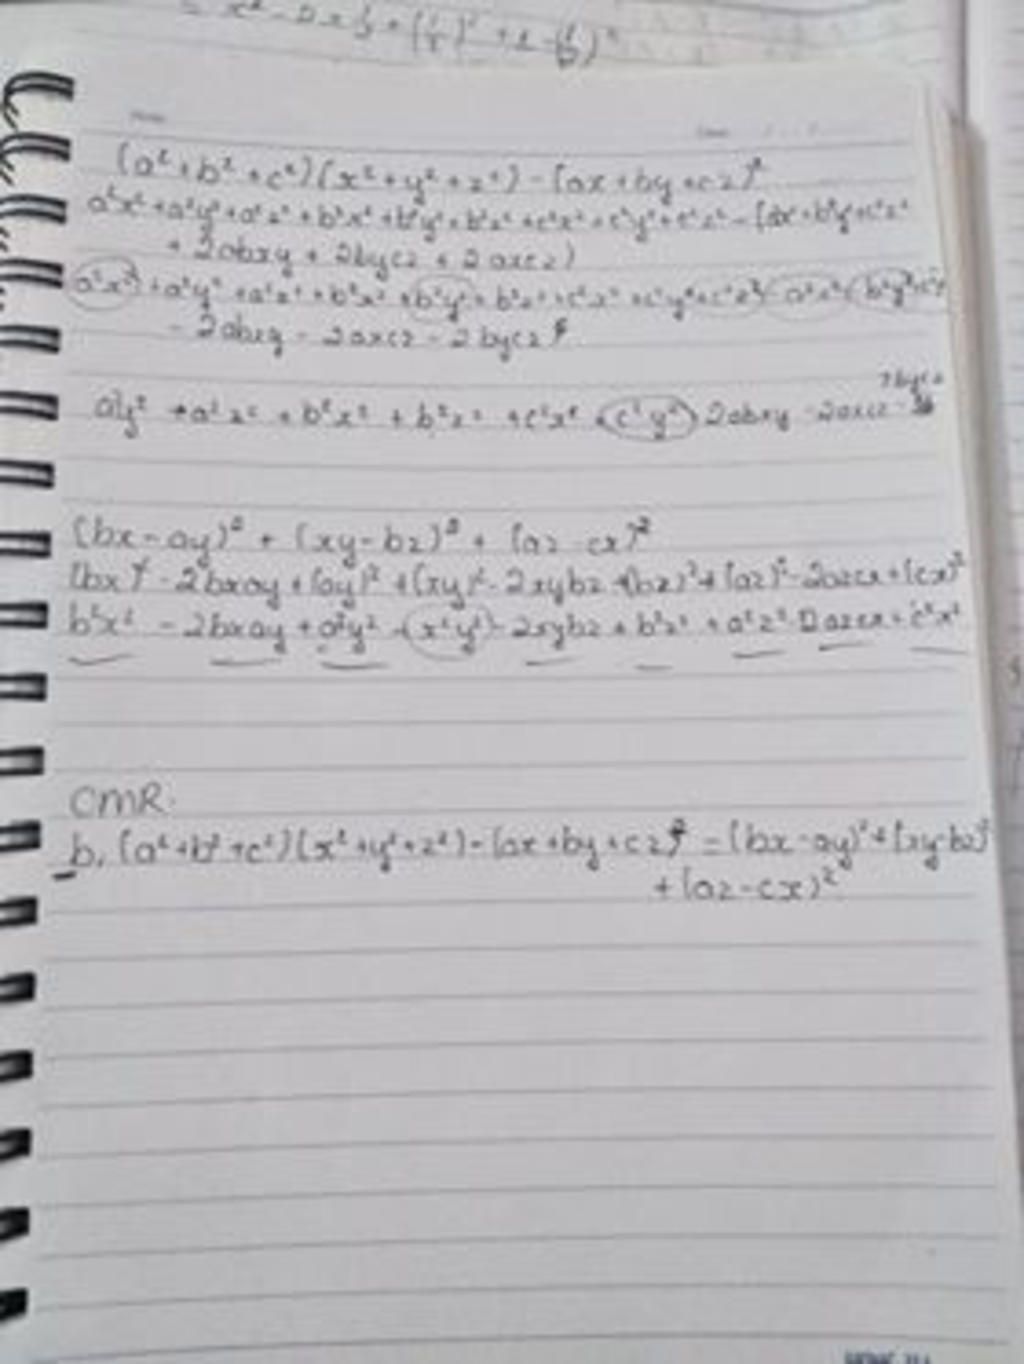 (a²+b²+c²)(x²+y²+z²) - (ax+by+cz)²
a²x²+a²y²+a²z²+b²x²+b²y²+b²z²+c²x²+c²y²+c²z² - (a²x²+b²y²+c²z²
+ 2abxy + 2bycz + 2axcz)
a²x² + a²y² + a²z² + b²x² + b²y² + b²z² + c²x² + c²y² + c²z² - a²x² - b²y² - c²z²
- 2abxy - 2axcz - 2bycz
2bycz
a²y² + a²z² + b²x² + b²z² + c²x² + c²y² - 2abxy - 2axcz -
(bx-ay)² + (xy-bz)² + (az-cx)²
(bx)² - 2bxay + (ay)² + (xy)² - 2xybz + (bz)² + (az)² - 2azcx + (cx)²
b²x² - 2bxay + a²y² + (x²y²) - 2xybz + b²z² + a²z² - 2azcx + c²x²
CMR.
b. (a²+b²+c²)(x²+y²+z²)-(ax+by+cz)² = (bx-ay)²+(xy-bz)²
+(az-cx)²